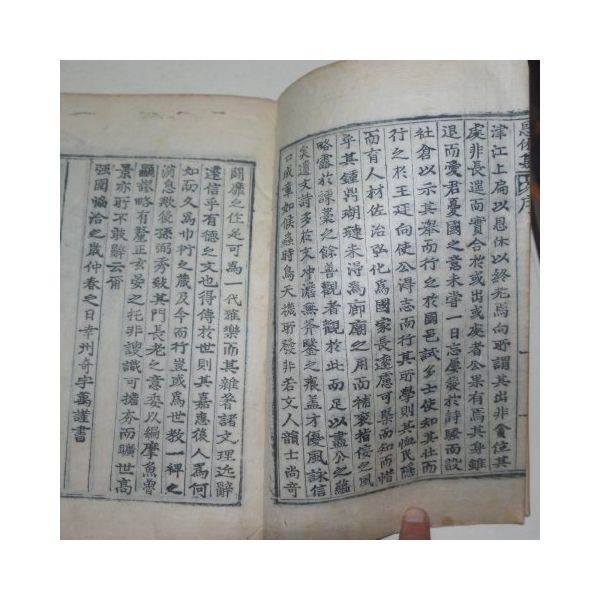 津江上扁以息休以終老焉向所謂其出非貪位其
處非長遯而實合於或出或處者公果有焉其身雖
退而愛君憂國之意未嘗一日忘屢發於詩騷而設
社倉以示其案而行之於國邑試多士使知其仕而
行之於王廷向使公得志而行其所學則其恤民隱
而育人材佐治弘化爲國家長遠慮可槩而知而惜
乎其鍾鼎瑚璉未得爲廊廟之用而補衮指佞之風
略盡於諫藁之餘善觀者觀於此而足以盡公之蘊
矣遺文詩多於文冲澹無斧鑿之痕盖才優風詠信
口成章如候蟲時鳥天機所發非若文人韻士尚奇
鬪靡之作足可爲一代雅樂而其雜著諸文理近辭
達信乎有德之文也得傳於世則其嘉惠後人爲何
如而久爲巾衍之藏及今而行豈或爲世教一裨之
消息歟後孫弼秀致其門長老之意委以編摩魚魯
顯謨略有釐正玄晏之托非謏識可擔夯而曠世高
景亦所不敢辭云爾
强圉協洽之歲仲春之日幸州奇宇萬謹書